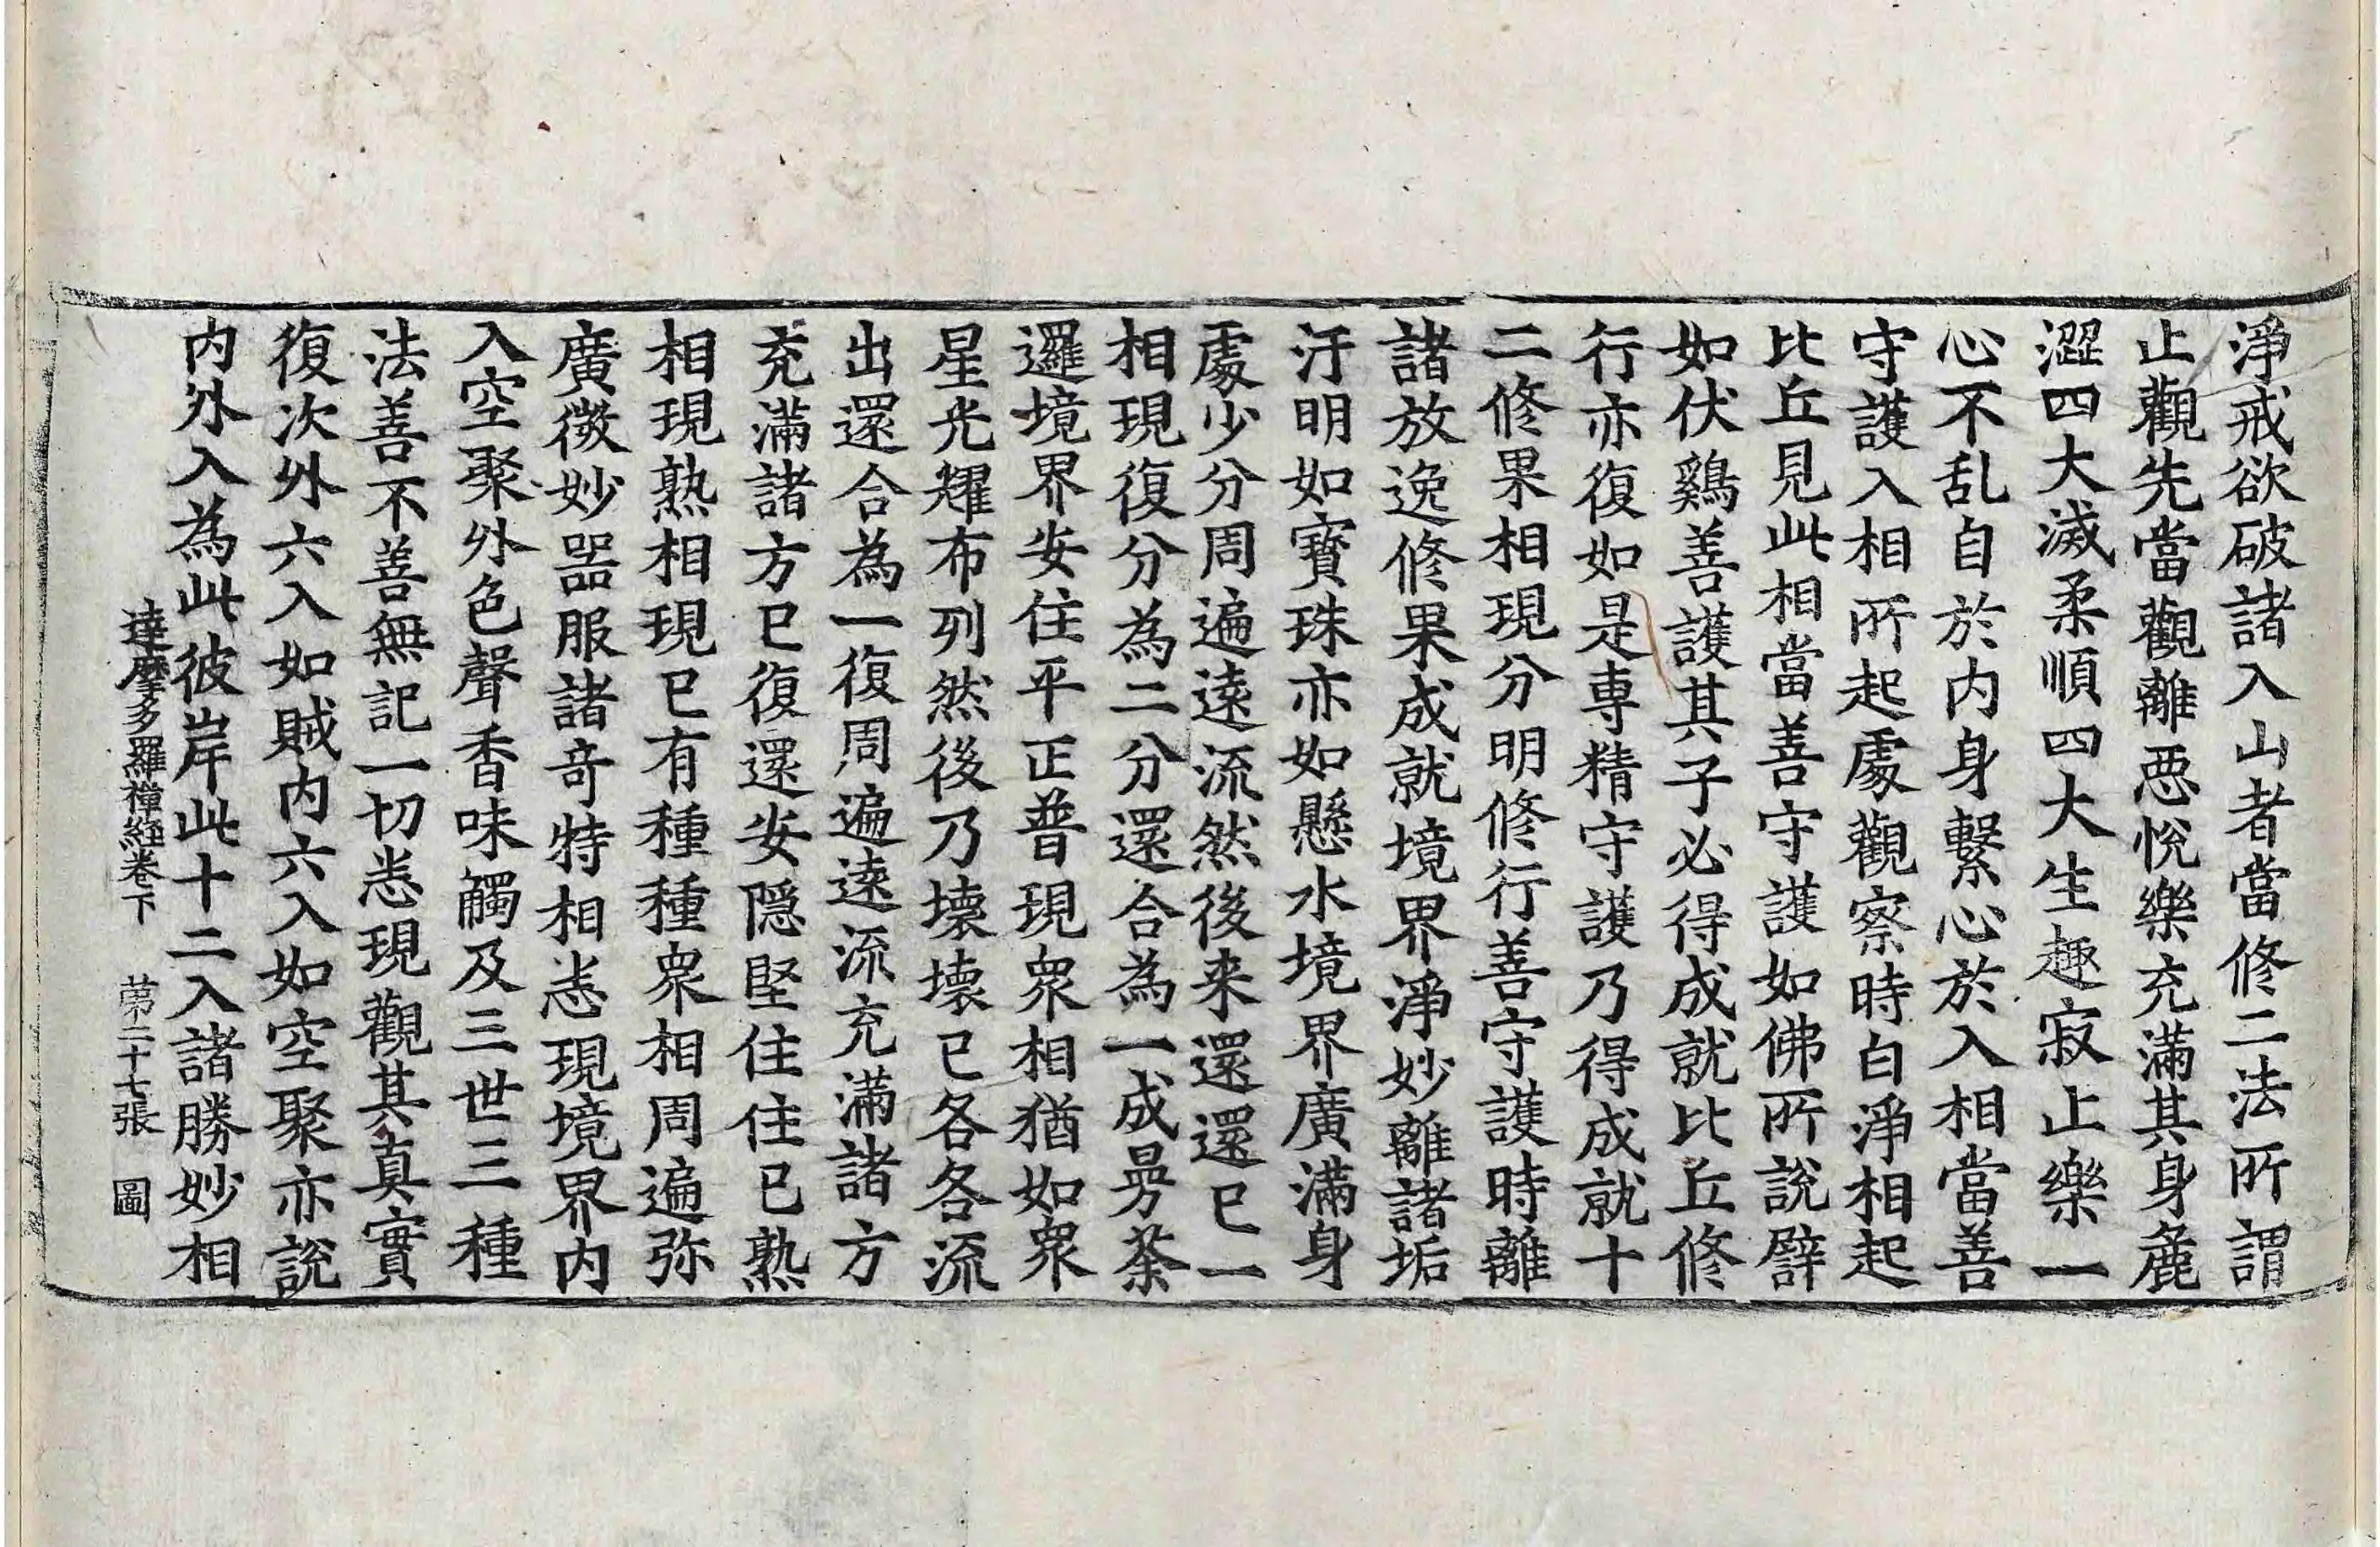 淨戒欲破諸入山者當修二法所謂
止觀先當觀離惡悅樂充滿其身麁
澀四大滅柔順四大生趣寂止樂一
心不乱自於内身繫心於入相當善
守護入相所起處觀察時白淨相起
比丘見此相當善守護如佛所說譬
如伏鷄善護其子必得成就比丘修
行亦復如是專精守護乃得成就十
二修果相現分明修行善守護時離
諸放逸修果成就境界淨妙離諸垢
汙明如寶珠亦如懸水境界廣滿身
處少分周遍遠流然後来還還已一
相現復分為二分還合為一成曼荼
邏境界安住平正普現衆相猶如衆
星光耀布列然後乃壞壞已各各流
出還合為一復周遍遠流充滿諸方
充滿諸方已復還安隱堅住住已熟
相現熟相現已有種種衆相周遍弥
廣微妙器服諸奇特相恙現境界内
入空聚外色聲香味觸及三世三種
法善不善無記一切恙現觀其真實
復次外六入如賊内六入如空聚亦說
内外入為此彼岸此十二入諸勝妙相
達摩多羅禪經卷下 第二十七張 圖